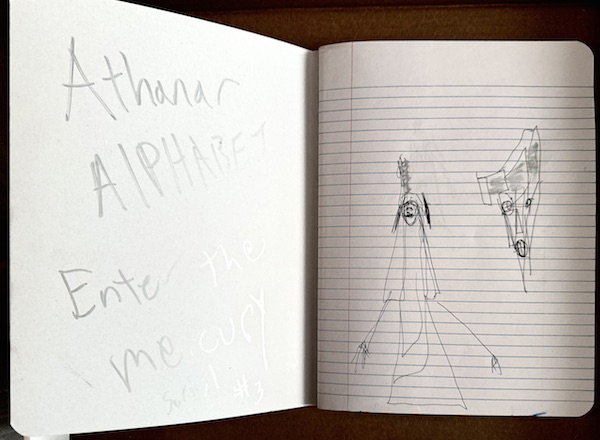 Athanar
AlPHABET
Enter the
mercury
#3